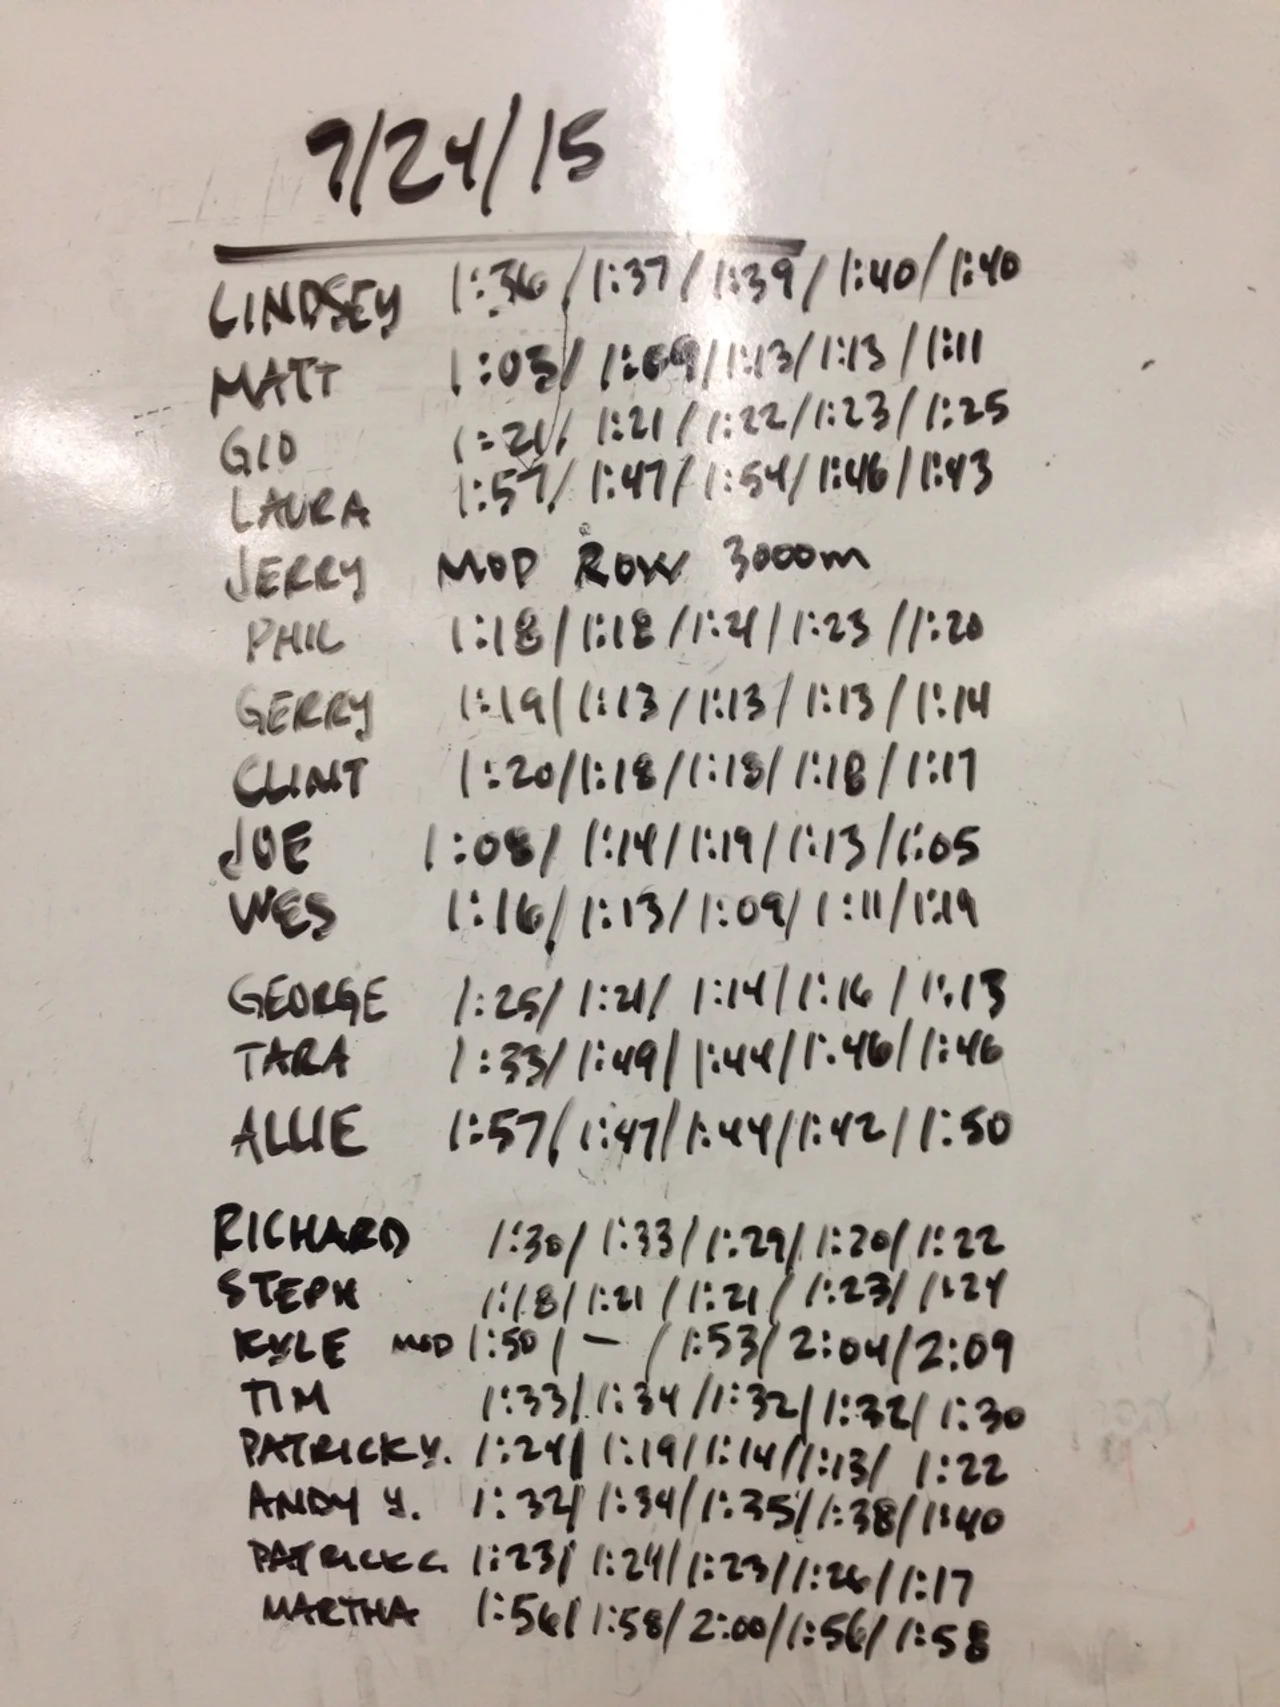 7/24/15
LINDSEY 1:36/1:37/1:39/1:40/1:40
MATT 1:05/1:09/1:13/1:13/1:11
GIO 1:21/1:21/1:22/1:23/1:25
LAURA 1:57/1:47/1:54/1:46/1:43
JERRY MOD ROW 3000m
PHIL 1:18/1:18/1:21/1:23/1:20
GERRY 1:19/1:13/1:13/1:13/1:14
CLINT 1:20/1:18/1:18/1:18/1:17
JOE 1:08/1:14/1:19/1:13/1:05
WES 1:16/1:13/1:09/1:11/1:19
GEORGE 1:25/1:21/1:14/1:16/1:13
TARA 1:33/1:49/1:44/1:46/1:46
ALLIE 1:57/1:47/1:44/1:42/1:50
RICHARD 1:30/1:33/1:29/1:20/1:22
STEPH 1:18/1:21/1:21/1:23/1:24
KYLE MOD 1:50/—/1:53/2:04/2:09
TIM 1:33/1:34/1:32/1:32/1:30
PATRICK Y. 1:24/1:19/1:14/1:13/1:22
ANDY Y. 1:32/1:34/1:35/1:38/1:40
PATRICK C. 1:23/1:24/1:23/1:26/1:17
MARTHA 1:56/1:58/2:00/1:56/1:58